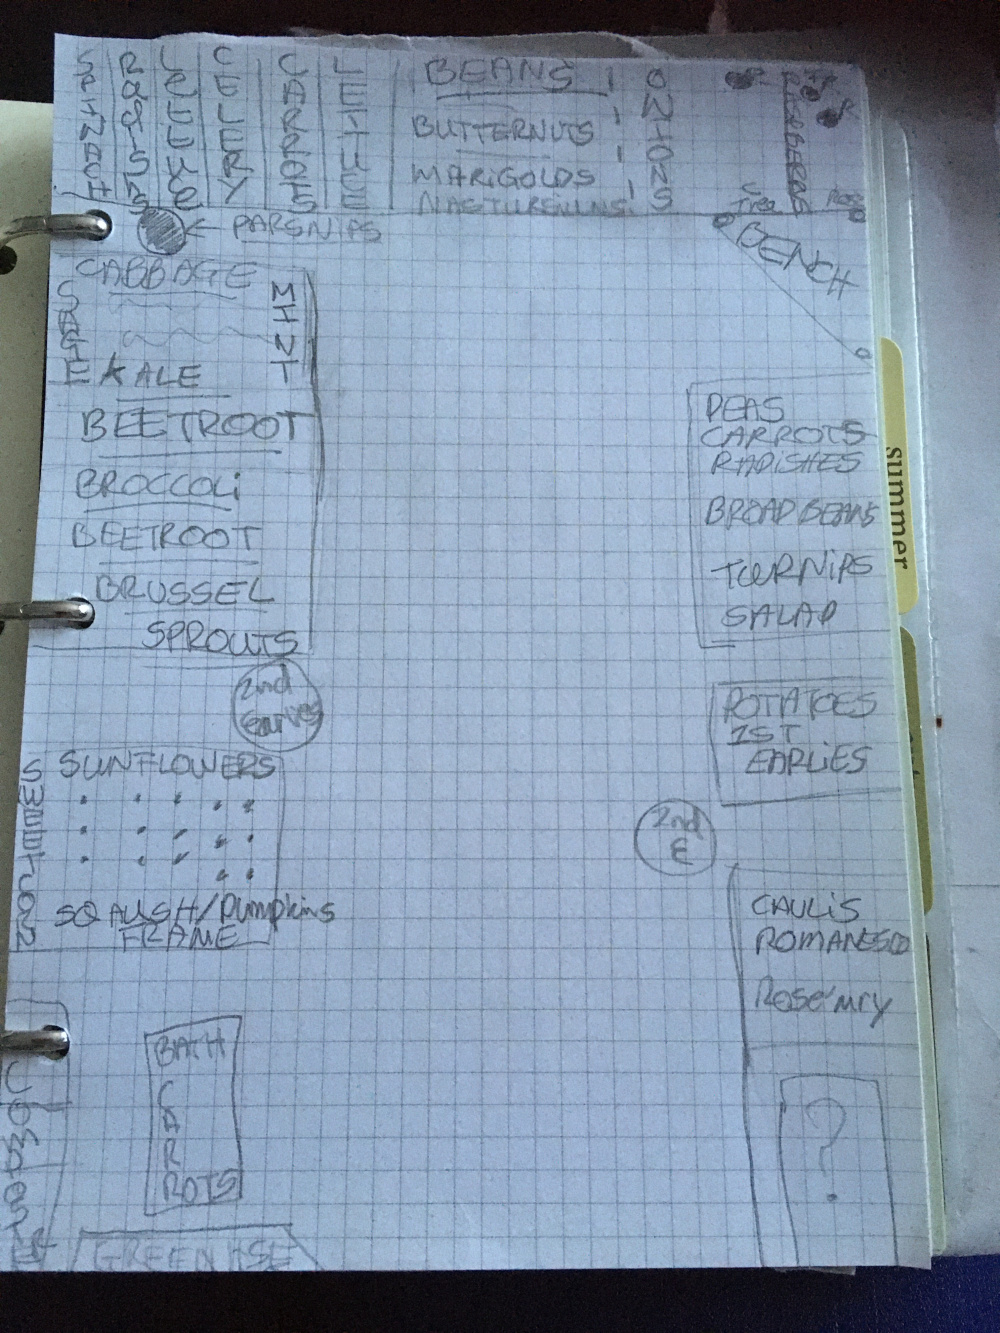 SPINACH
CELERY
CARROTS
LETTUCE
BEANS
BUTTERNUTS
MARIGOLDS
ONIONS
Tree
BENCH
PARSNIPS
CABBAGE
SAGE
MINT
KALE
BEETROOT
BROCCOLi
BEETROOT
BRUSSEL
SPROUTS
PEAS
CARROTS
RADiSHES
BROAD BEANS
TURNiPS
SALAD
summer
2nd
Earlies
POTATOES
1ST
EARLiES
2nd
E
SUNFLOWERS
SQAUSH/Pumpkins
FRAME
CAULiS
ROMANESCO
Rosemry
BATH
CAR
ROTS
?
GREENHSE